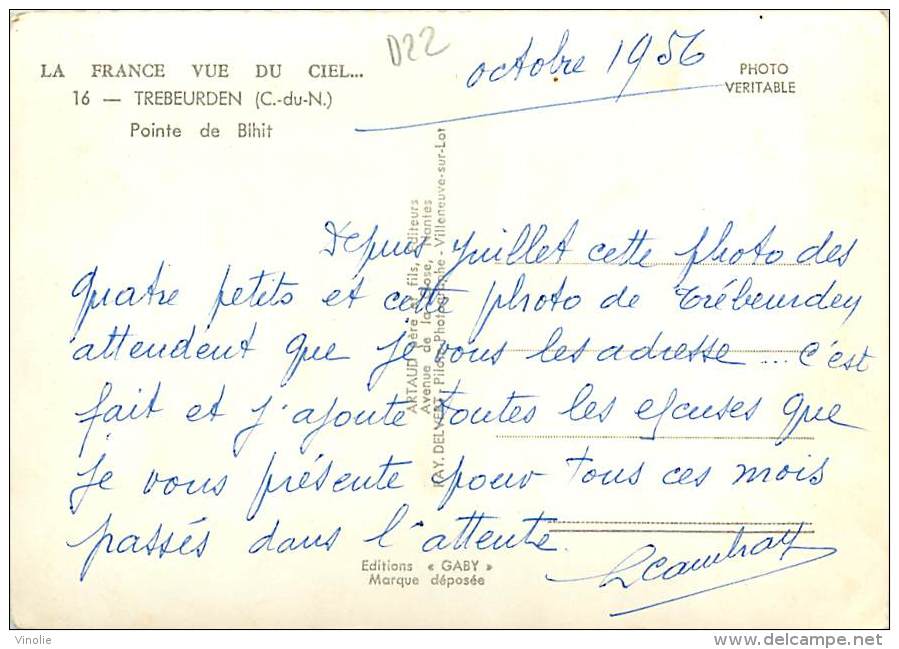 D22
octobre 1956
LA FRANCE VUE DU CIEL...
16 — TREBEURDEN (C.-du-N.)
Pointe de Bihit
PHOTO
VERITABLE
Depuis juillet cette photo des
quatre petits et cette photo de Trébeurden
attendent que je vous les adresse... c'est
fait et j'ajoute toutes les excuses que
je vous présente pour tous ces mois
passés dans l'attente.
ARTAUD père et fils, éditeurs
Avenue de la Close, Nantes
RAY. DELVERT, Pilote-Photographe - Villeneuve-sur-Lot
Editions « GABY »
Marque déposée
Vinolie
delcampe.net